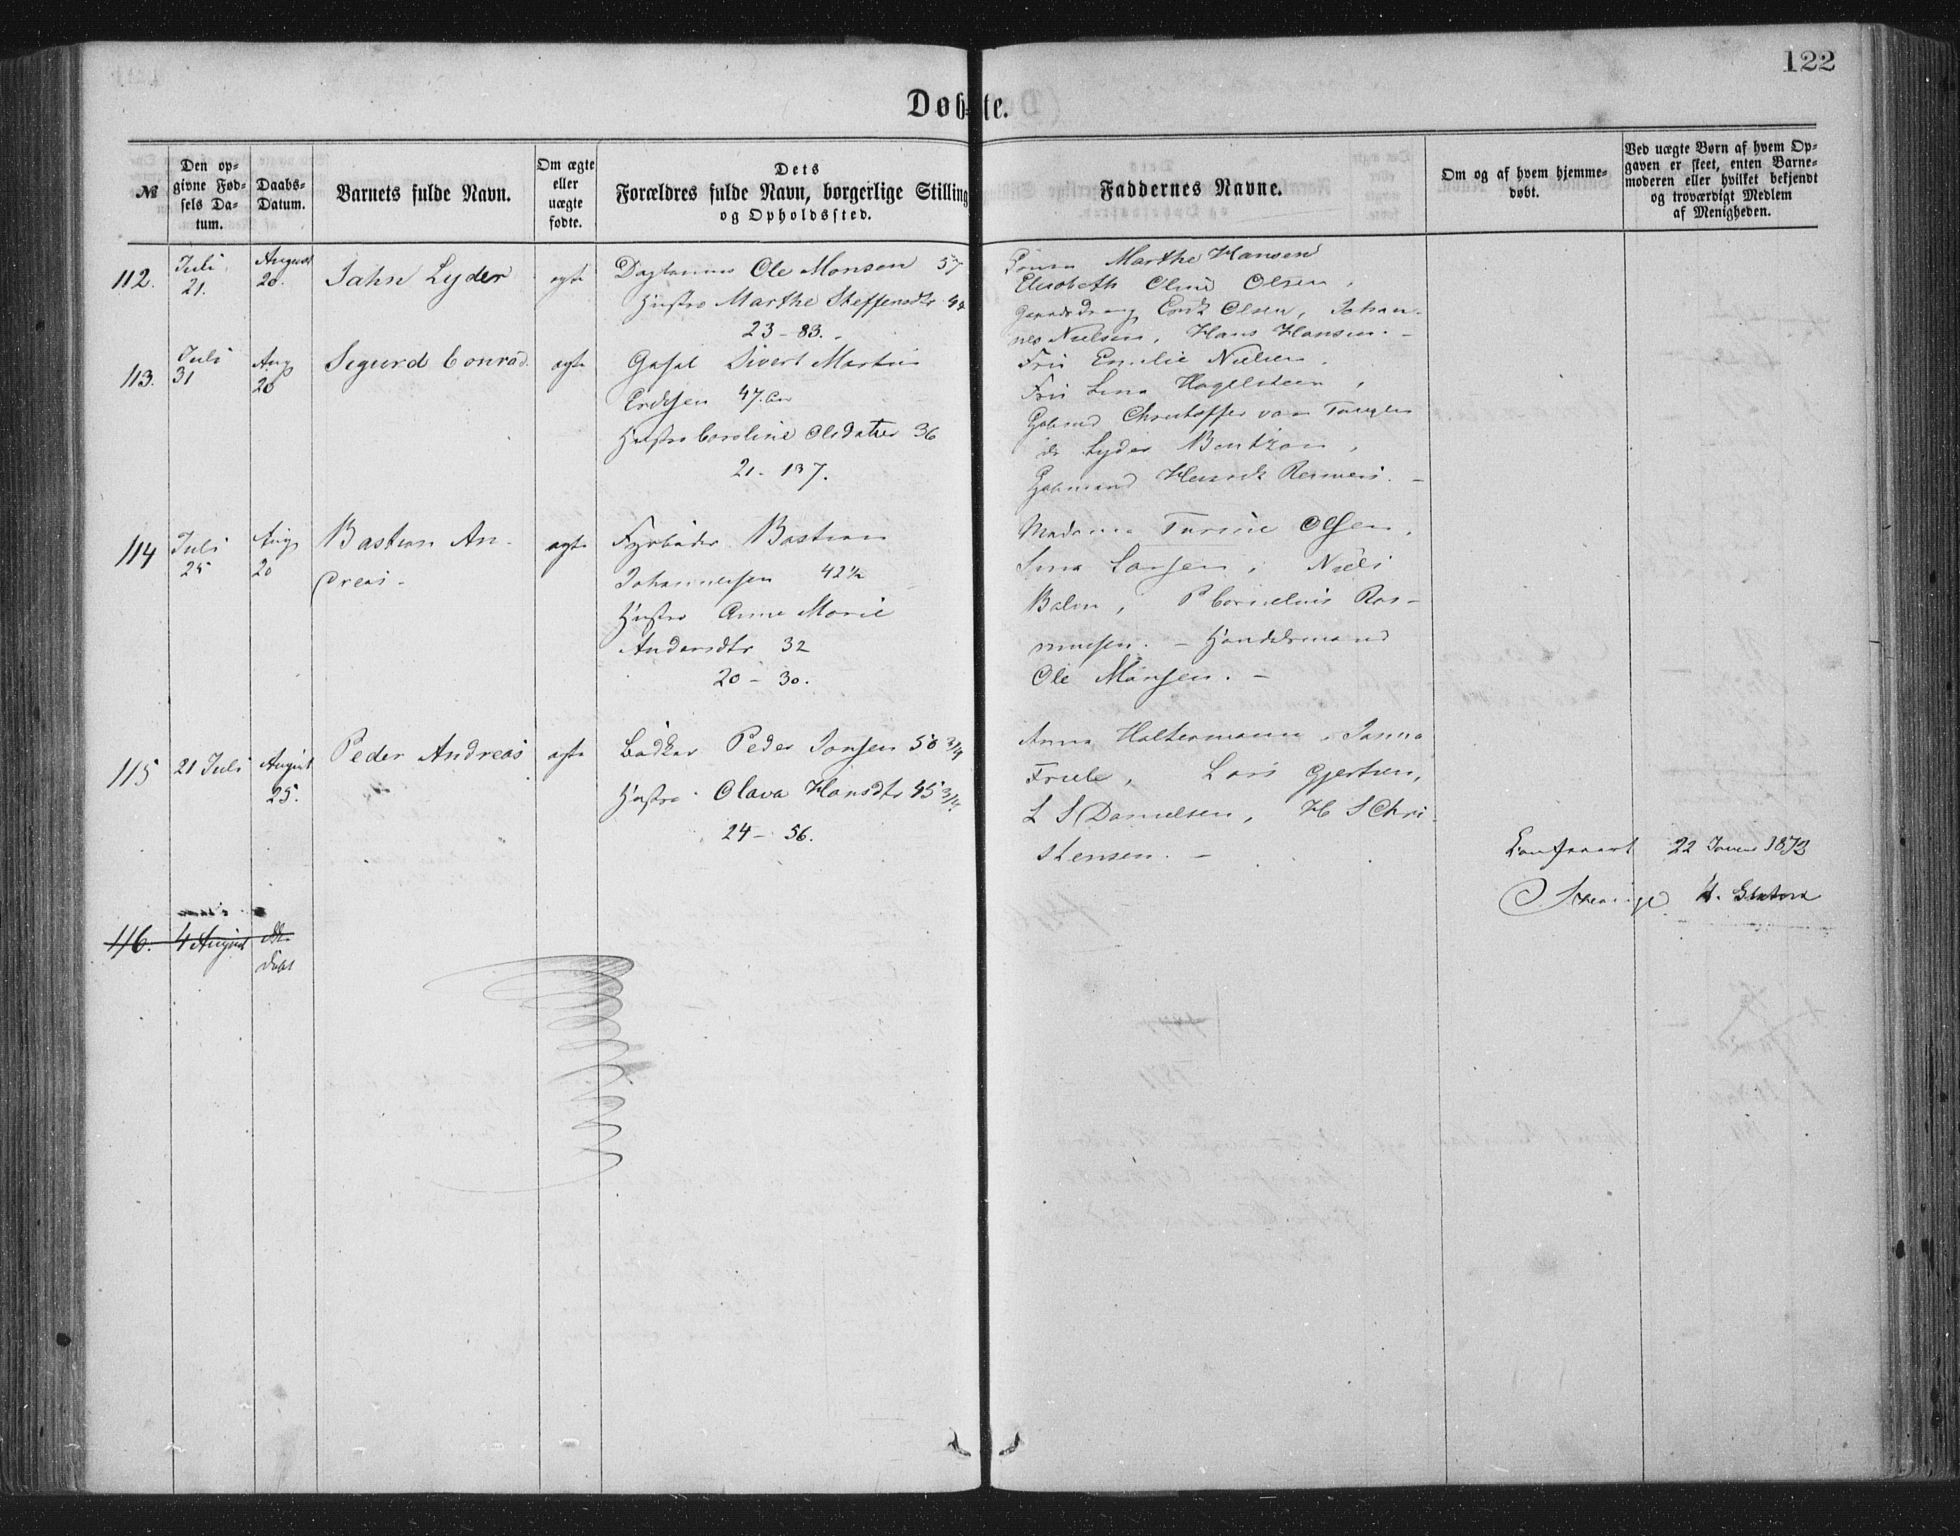 122
Døbte.
№
Den op-
givne Fød-
sels Da-
tum.
Daabs-
Datum.
Barnets fulde Navn.
Om ægte
eller
uægte
fødte.
Dets
Forældres fulde Navn, borgerlige Stilling
og Opholdssted.
Faddernes Navne.
Om og af hvem hjemme-
døbt.
Ved uægte Børn af hvem Op-
gaven er skeet, enten Barne-
moderen eller hvilket bekjendt
og troværdigt Medlem
af Menigheden.
112.
Juli
21.
August
20.
Jahn Lyder
ægte
Ole Monsen 57
Hustro Marthe Steffensdtr 44
23 - 83.
Marthe Hansen
Elisabeth Oline Olsen,
Erik Olsen, Johan-
nes Nielsen, Hans Hansen. -
113.
Juli
31
Aug
20
Sigurd Conrad
ægte
Sivert Martin
Ericksen 47
Hustro Caroline Olsdatter 36
21 - 137.
Fru Emilie Nielsen,
Fru Lina Hagelsteen,
Christoffer van Tangen
do Lyder Bentzon,
Henrik Reimers. -
114
Juli
25
Aug
20
Bastian An-
dreas -
ægte
Fyrbøder Bastian
Johannessen 42½
Hustro Anne Marie
Andersdtr 32
20 - 30.
Madame Turine Olsen,
Sina Larsen, Niels
P Cornelius Ras-
mussen. - Handelsmand
Ole Monsen. -
115
21 Juli
August
25.
Peder Andreas
ægte
Bødker Peder Jonsen 50 3/4
Hustro Olava Hansdtr 45 3/4
24 - 56.
Anna Haltermann, Janna
Friele, Lars Gjertsen,
L S Danielsen, H S Chri-
stensen. -
22 1873
116.
4 August
Døbt